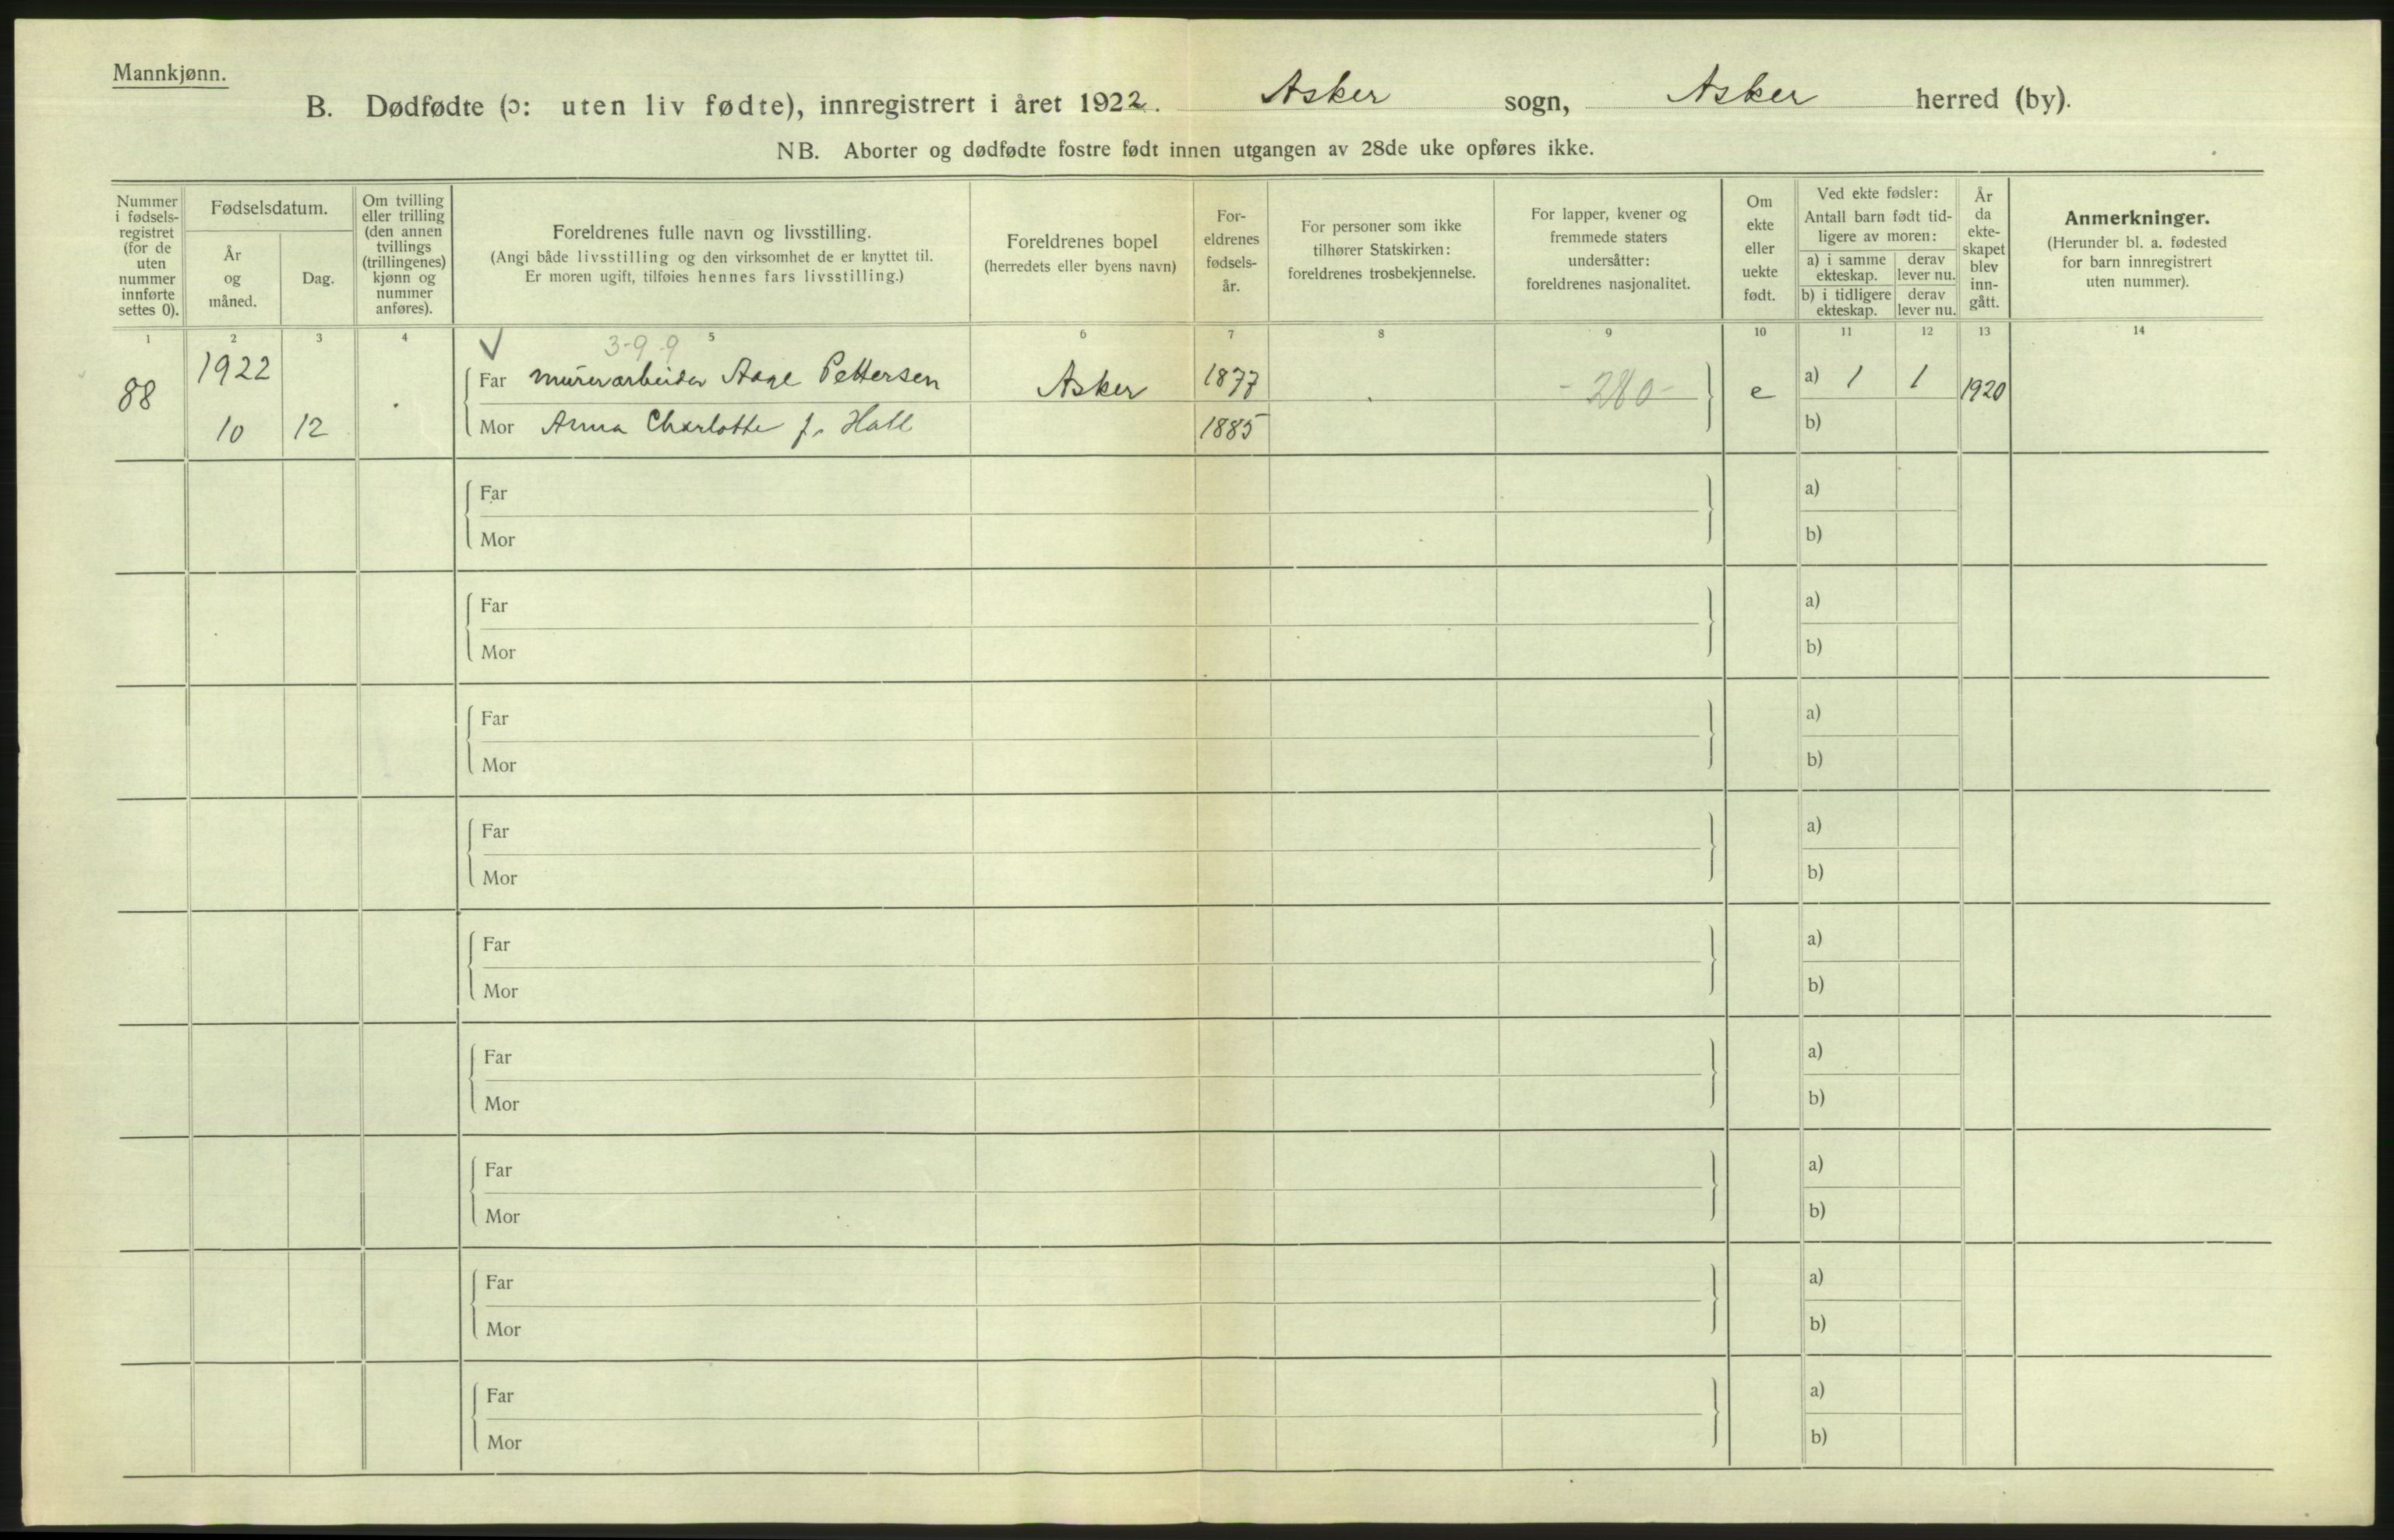 Mannkjønn.
B. Dødfødte (ɔ: uten liv fødte), innregistrert i året 1922. Asker sogn, Asker herred (by).
NB. Aborter og dødfødte fostre født innen utgangen av 28de uke opføres ikke.
Nummer i fødsels-registret (for de uten nummer innførte settes 0).
Fødselsdatum.
År og måned.
Dag.
Om tvilling eller trilling (den annen tvillings (trillingenes) kjønn og nummer anføres).
Foreldrenes fulle navn og livsstilling.
(Angi både livsstilling og den virksomhet de er knyttet til.
Er moren ugift, tilføies hennes fars livsstilling.)
Foreldrenes bopel
(herredets eller byens navn)
For-eldrenes fødsels-år.
For personer som ikke tilhører Statskirken: foreldrenes trosbekjennelse.
For lapper, kvener og fremmede staters undersåtter: foreldrenes nasjonalitet.
Om ekte eller uekte født.
Ved ekte fødsler:
Antall barn født tid-ligere av moren:
a) i samme ekteskap.
derav lever nu.
b) i tidligere ekteskap.
derav lever nu.
År da ekte-skapet blev inn-gått.
Anmerkninger.
(Herunder bl. a. fødested for barn innregistrert uten nummer).
1 2 3 4 5 6 7 8 9 10 11 12 13 14
3-9 9
88 1922 Far murerarbeider Aage Pettersen Asker 1877 - 280 - e a) 1 1 1920
10 12 Mor Anna Charlotte f. Hall 1885 b)
Far a)
Mor b)
Far a)
Mor b)
Far a)
Mor b)
Far a)
Mor b)
Far a)
Mor b)
Far a)
Mor b)
Far a)
Mor b)
Far a)
Mor b)
Far a)
Mor b)